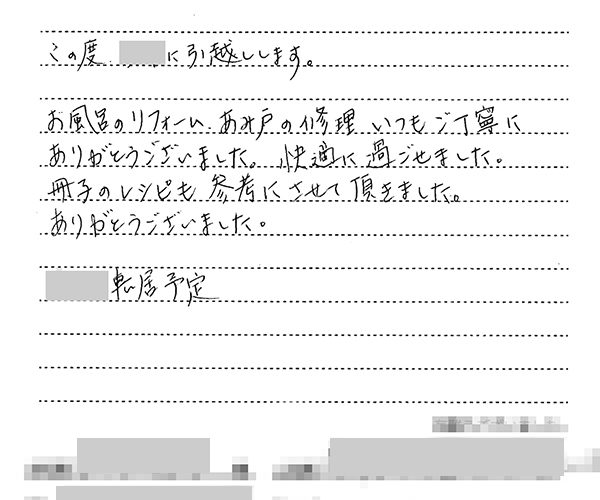 この度 に引越しします。
お風呂のリフォーム、あみ戸の修理 いつもご丁寧に
ありがとうございました。快適に過ごせました。
冊子のレシピも参考にさせて頂きました。
ありがとうございました。
転居予定